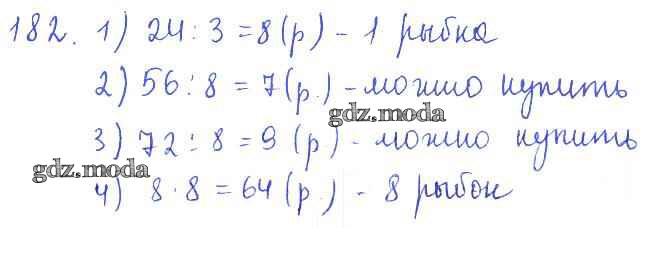 182. 1) 24 : 3 = 8 (р) - 1 рыбка
2) 56 : 8 = 7 (р.) - можно купить
gdz.moda
3) 72 : 8 = 9 (р) - можно купить
gdz.moda
4) 8 · 8 = 64 (р.) - 8 рыбок